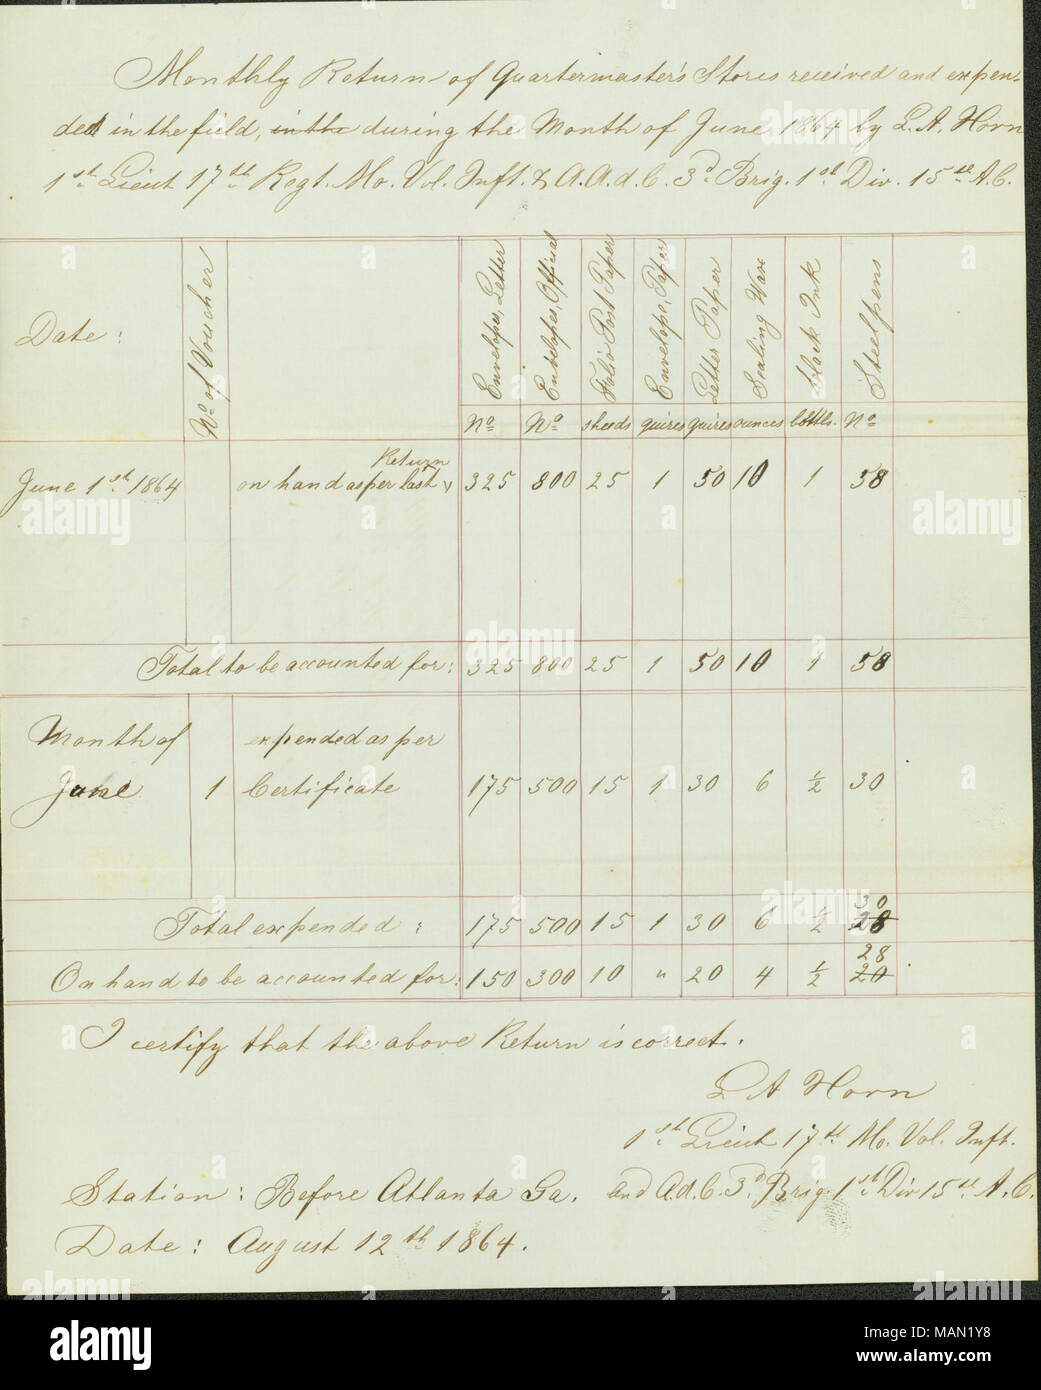 Monthly Return of Quartermaster's Stores received and expen-
ded in the field, in the during the Month of June 1864 by L. A. Horn
1st Lieut 17th Regt. Mo. Vol. Inft. & A. A. d. C. 3d Brig. 1st Div. 15th A. C.
Date: No of Voucher Envelopes, Letter Envelopes, Official Folio Post Paper Envelope, Paper Letter Paper Sealing Wax black Ink Steelpens
No No sheeds quires quires ounces bottls. No
Return
June 1st 1864 on hand as per last 325 800 25 1 50 10 1 58
Total to be accounted for: 325 800 25 1 50 10 1 58
Month of expended as per
June 1 Certificate 175 500 15 1 30 6 ½ 30
30
Total expended: 175 500 15 1 30 6 ½ 28
28
On hand to be accounted for: 150 300 10 " 20 4 ½ 20
I certify that the above Return is correct.
L A Horn
1st Lieut 17th Mo. Vol. Inft.
Station: Before Atlanta Ga. and A. d. C. 3d Brig. 1st Div 15th A. C.
Date: August 12th 1864.
alamy
Image ID: MAN1Y8
www.alamy.com